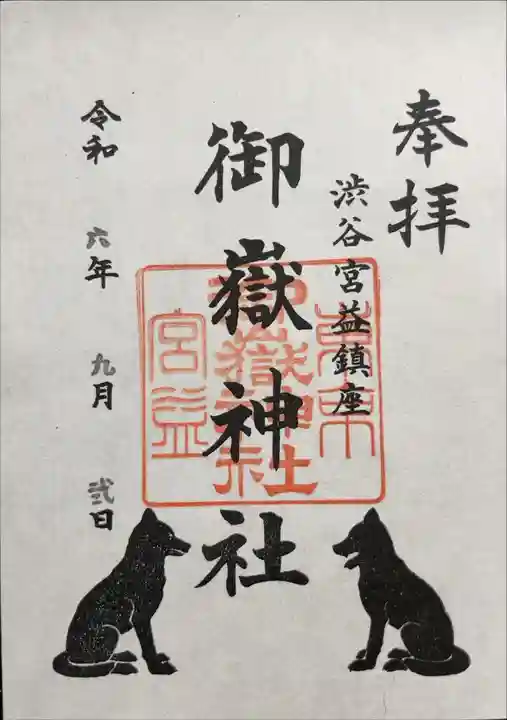 奉拝
渋谷宮益鎮座
御嶽神社
東京
御嶽神社
宮益
令和 六年 九月 弐日